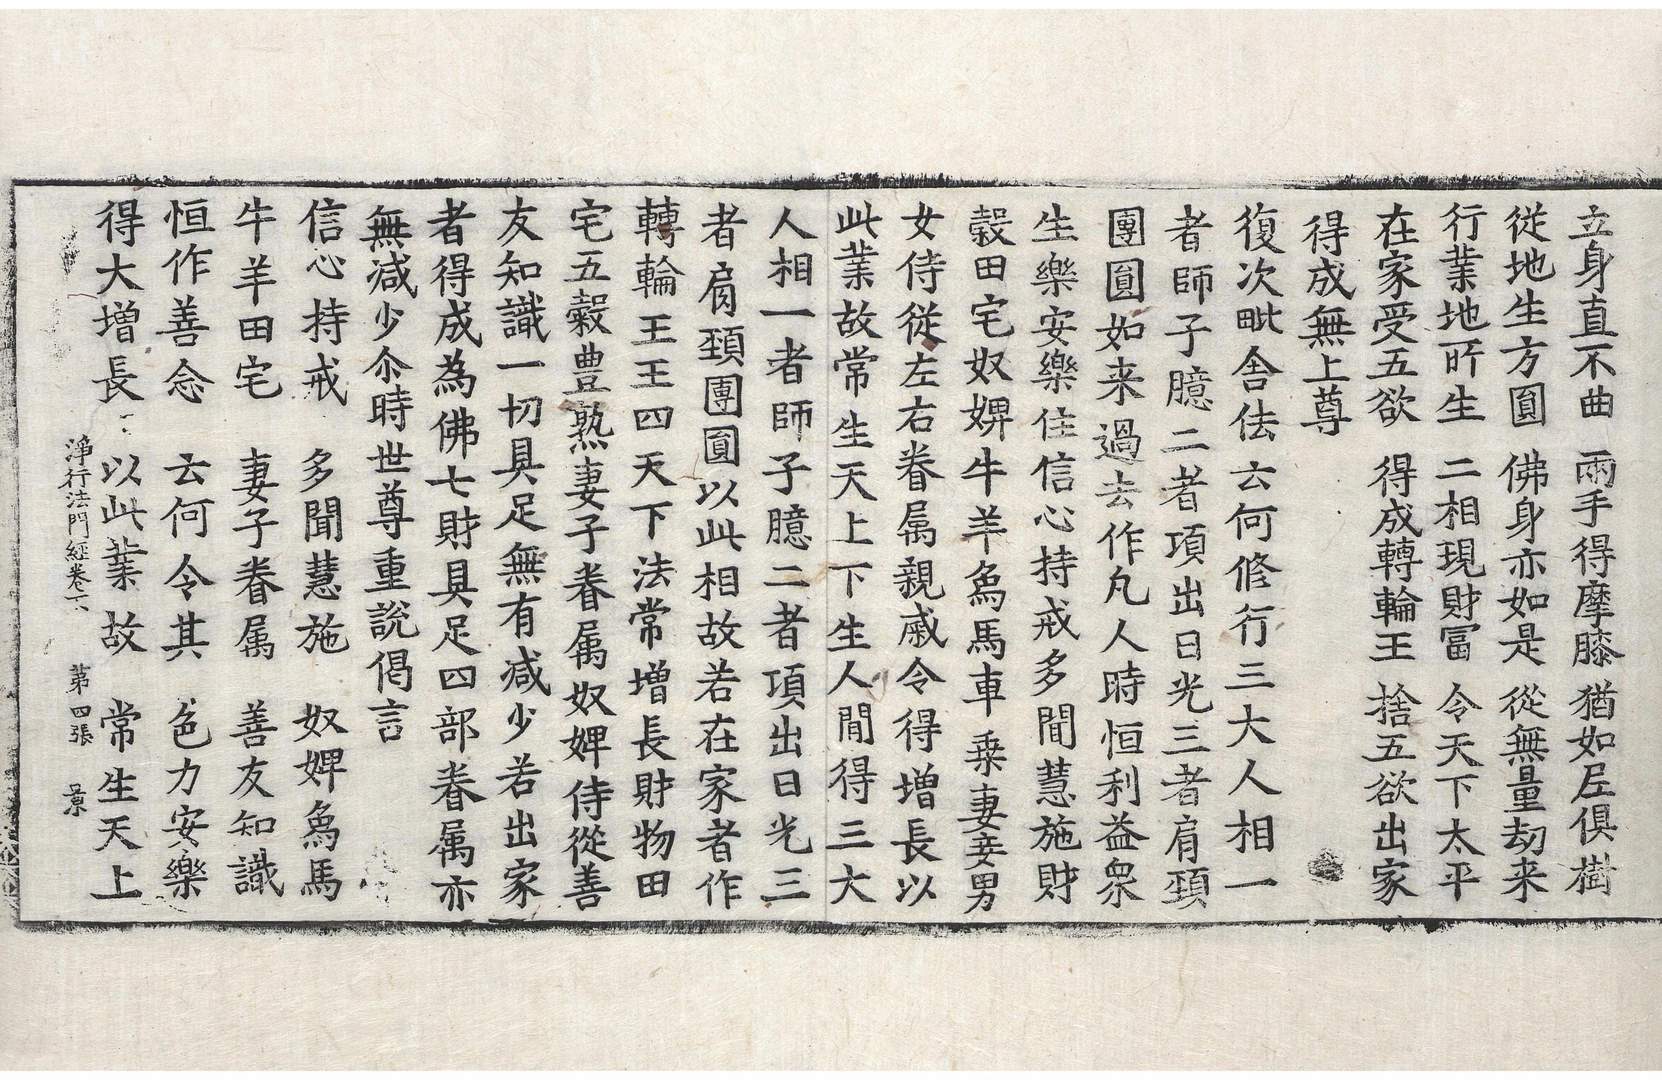 立身直不曲　兩手得摩膝　猶如尼俱樹
從地生方圓　佛身亦如是　從無量劫来
行業地所生　二相現財冨　令天下太平
在家受五欲　得成轉輪王　捨五欲出家
得成無上尊
復次毗舍佉云何修行三大人相一
者師子臆二者項出日光三者肩頚
團圓如来過去作凡人時恒利益衆
生樂安樂住信心持戒多聞慧施財
穀田宅奴婢牛羊象馬車乗妻妾男
女侍從左右眷属親戚令得增長以
此業故常生天上下生人間得三大
人相一者師子臆二者項出日光三
者肩頚團圓以此相故若在家者作
轉輪王王四天下法常增長財物田
宅五穀豊熟妻子眷属奴婢侍從善
友知識一切具足無有减少若出家
者得成為佛七財具足四部眷属亦
無减少尒時世尊重說偈言
信心持戒　多聞慧施　奴婢象馬
牛羊田宅　妻子眷属　善友知識
恒作善念　云何令其　色力安樂
得大增長　以此業故　常生天上
淨行法門經卷下　第四張　景